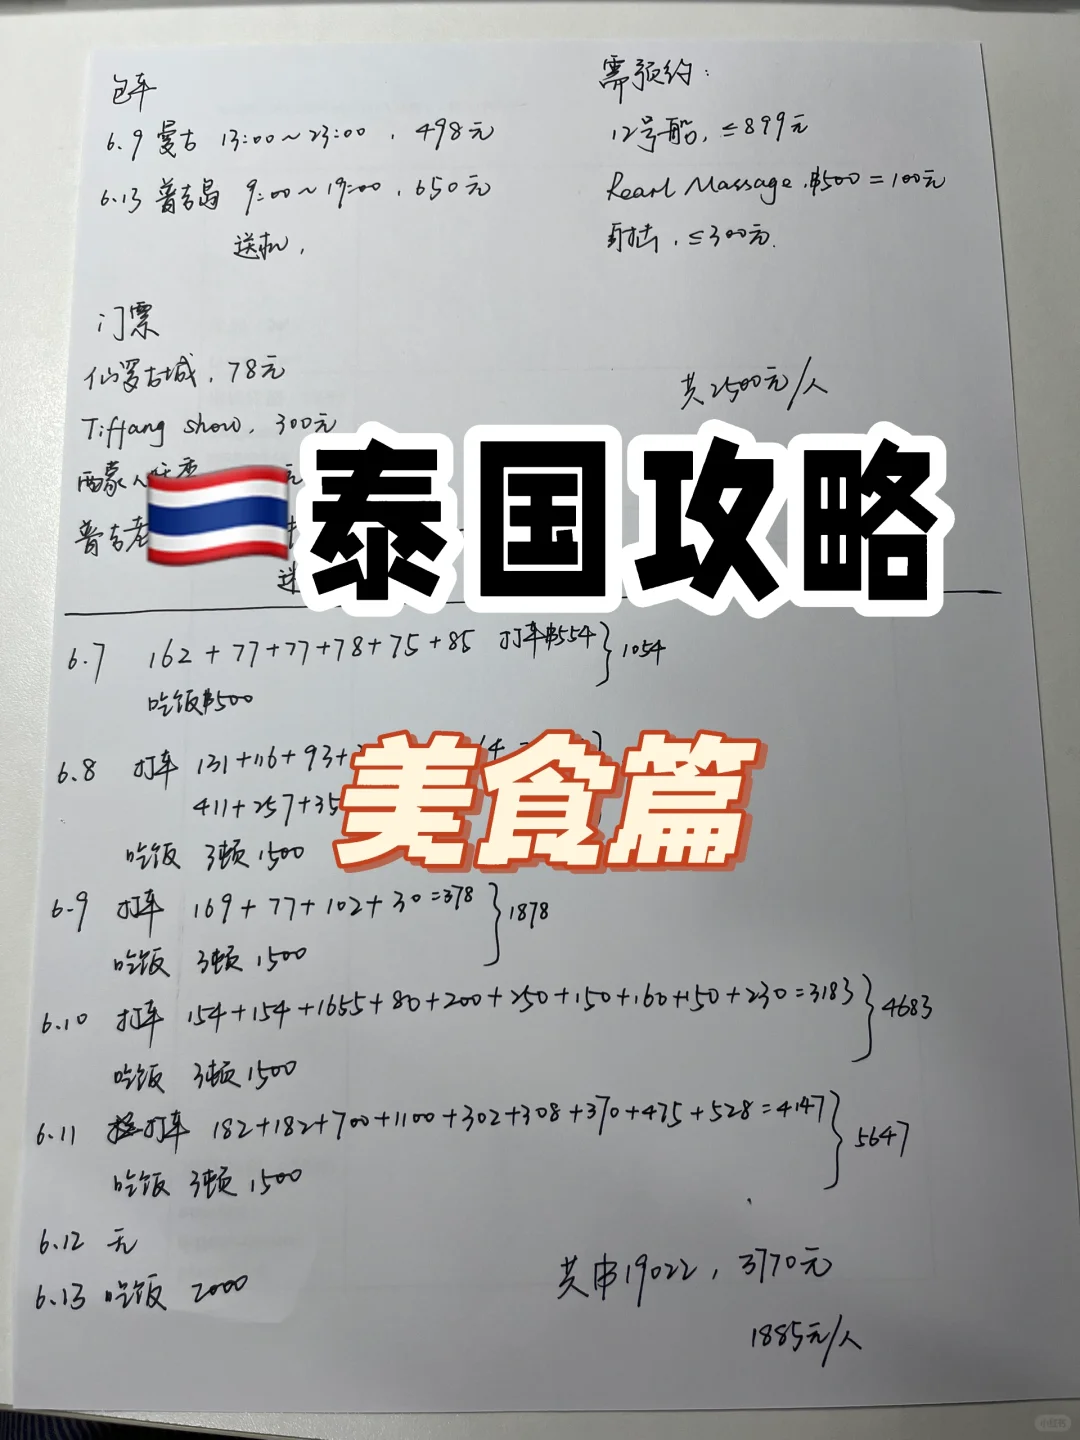 包车
6.9 曼古 13:00~23:00 , 498元
6.13 普吉岛 9:00~19:00 , 650元
送机,
需预约:
12号船, ≤899元
Rearl Massage, ฿500=100元
射击, ≤300元.
门票
仙罗古城, 78元
Tiffang show, 300元
共2500元/人
西蒙人妖秀 元
普吉
🇹🇭泰国攻略
6.7 162+77+77+78+75+85 打车฿554 } 1054
吃饭฿500
美食篇
6.8 打车 131+116+93+
411+257+35
吃饭 3顿 1500
6.9 打车 169+77+102+30=378 } 1878
吃饭 3顿 1500
6.10 打车 154+154+1655+80+200+250+150+160+150+230=3183 } 4683
吃饭 3顿 1500
6.11 打车 182+182+700+1100+302+308+370+475+528=4147 } 5647
吃饭 3顿 1500
6.12 无
6.13 吃饭 2000
共฿19022, 3770元
1885元/人
小红书